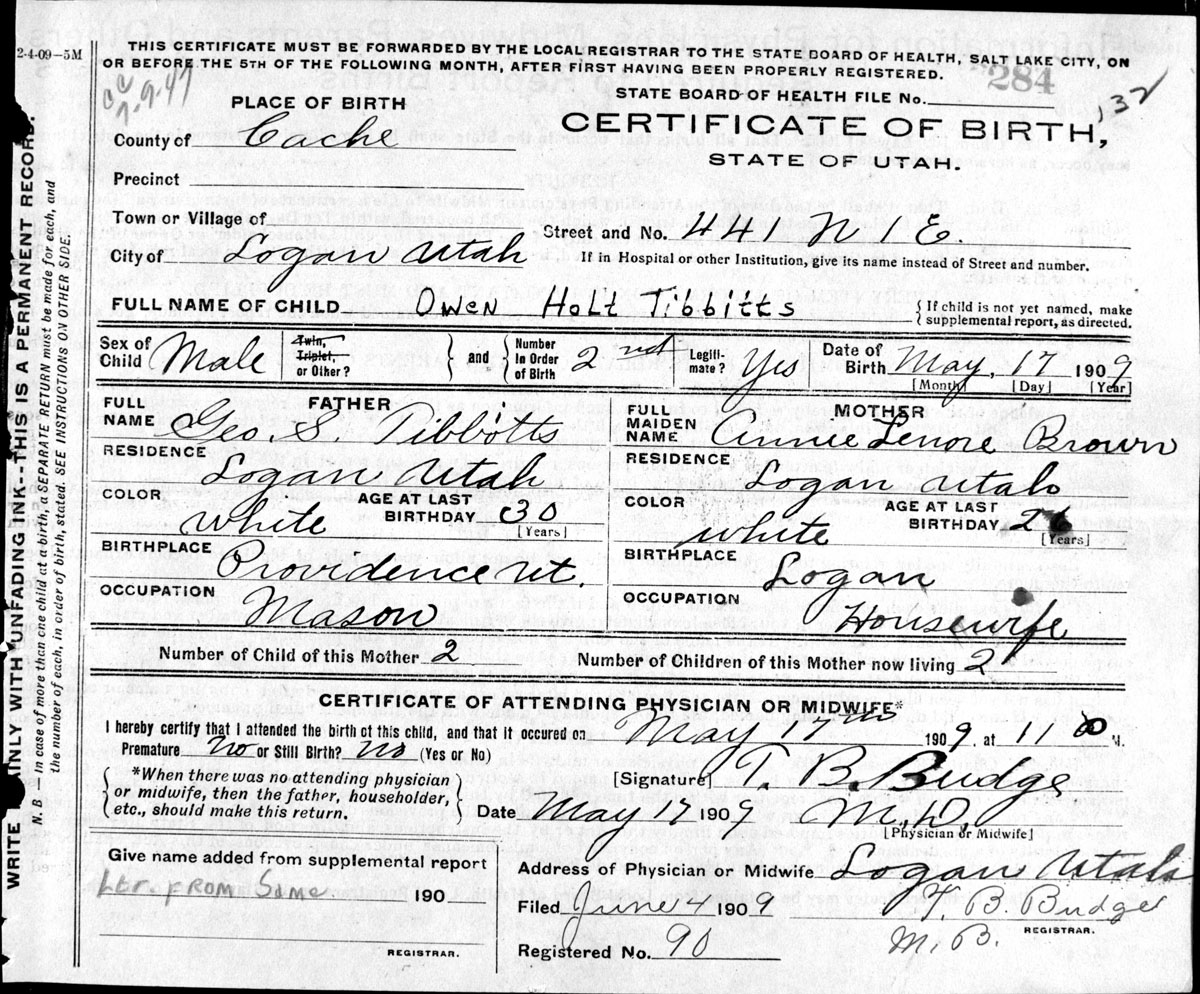 2-4-09—5M
THIS CERTIFICATE MUST BE FORWARDED BY THE LOCAL REGISTRAR TO THE STATE BOARD OF HEALTH, SALT LAKE CITY, ON
OR BEFORE THE 5TH OF THE FOLLOWING MONTH, AFTER FIRST HAVING BEEN PROPERLY REGISTERED.
7-9-47
284
132
PLACE OF BIRTH
STATE BOARD OF HEALTH FILE No.
County of Cache
CERTIFICATE OF BIRTH,
STATE OF UTAH.
Precinct
Town or Village of
Street and No. 441 N 1 E.
City of Logan Utah
If in Hospital or other Institution, give its name instead of Street and number.
FULL NAME OF CHILD Owen Holt Tibbitts
{ If child is not yet named, make
supplemental report, as directed.
Sex of Child Male
Twin, Triplet, or Other?
and
Number in Order of Birth 2nd
Legitimate? Yes
Date of Birth May, 17 1909
[Month] [Day] [Year]
FATHER
FULL NAME Geo. S. Tibbitts
RESIDENCE Logan Utah
COLOR White
AGE AT LAST BIRTHDAY 30 [Years]
BIRTHPLACE Providence Ut.
OCCUPATION Mason
MOTHER
FULL MAIDEN NAME Annie Lenore Brown
RESIDENCE Logan Utah
COLOR White
AGE AT LAST BIRTHDAY 26 [Years]
BIRTHPLACE Logan
OCCUPATION Housewife
Number of Child of this Mother 2
Number of Children of this Mother now living 2
CERTIFICATE OF ATTENDING PHYSICIAN OR MIDWIFE*
I hereby certify that I attended the birth of this child, and that it occured on May 17th 1909, at 11 M.
Premature no or Still Birth? no (Yes or No)
{ *When there was no attending physician
or midwife, then the father, householder,
etc., should make this return. }
[Signature] T. B. Budge
Date May 17 1909 M.D.
[Physician or Midwife]
Give name added from supplemental report
Ltr. FROM Same 190
REGISTRAR.
Address of Physician or Midwife Logan Utah
Filed June 4 1909 T. B. Budge
REGISTRAR.
M. B.
Registered No. 90
WRITE PLAINLY WITH UNFADING INK--THIS IS A PERMANENT RECORD.
N. B. In case of more than one child at a birth, a SEPARATE RETURN must be made for each, and
the number of each, in order of birth, stated. SEE INSTRUCTIONS ON OTHER SIDE.